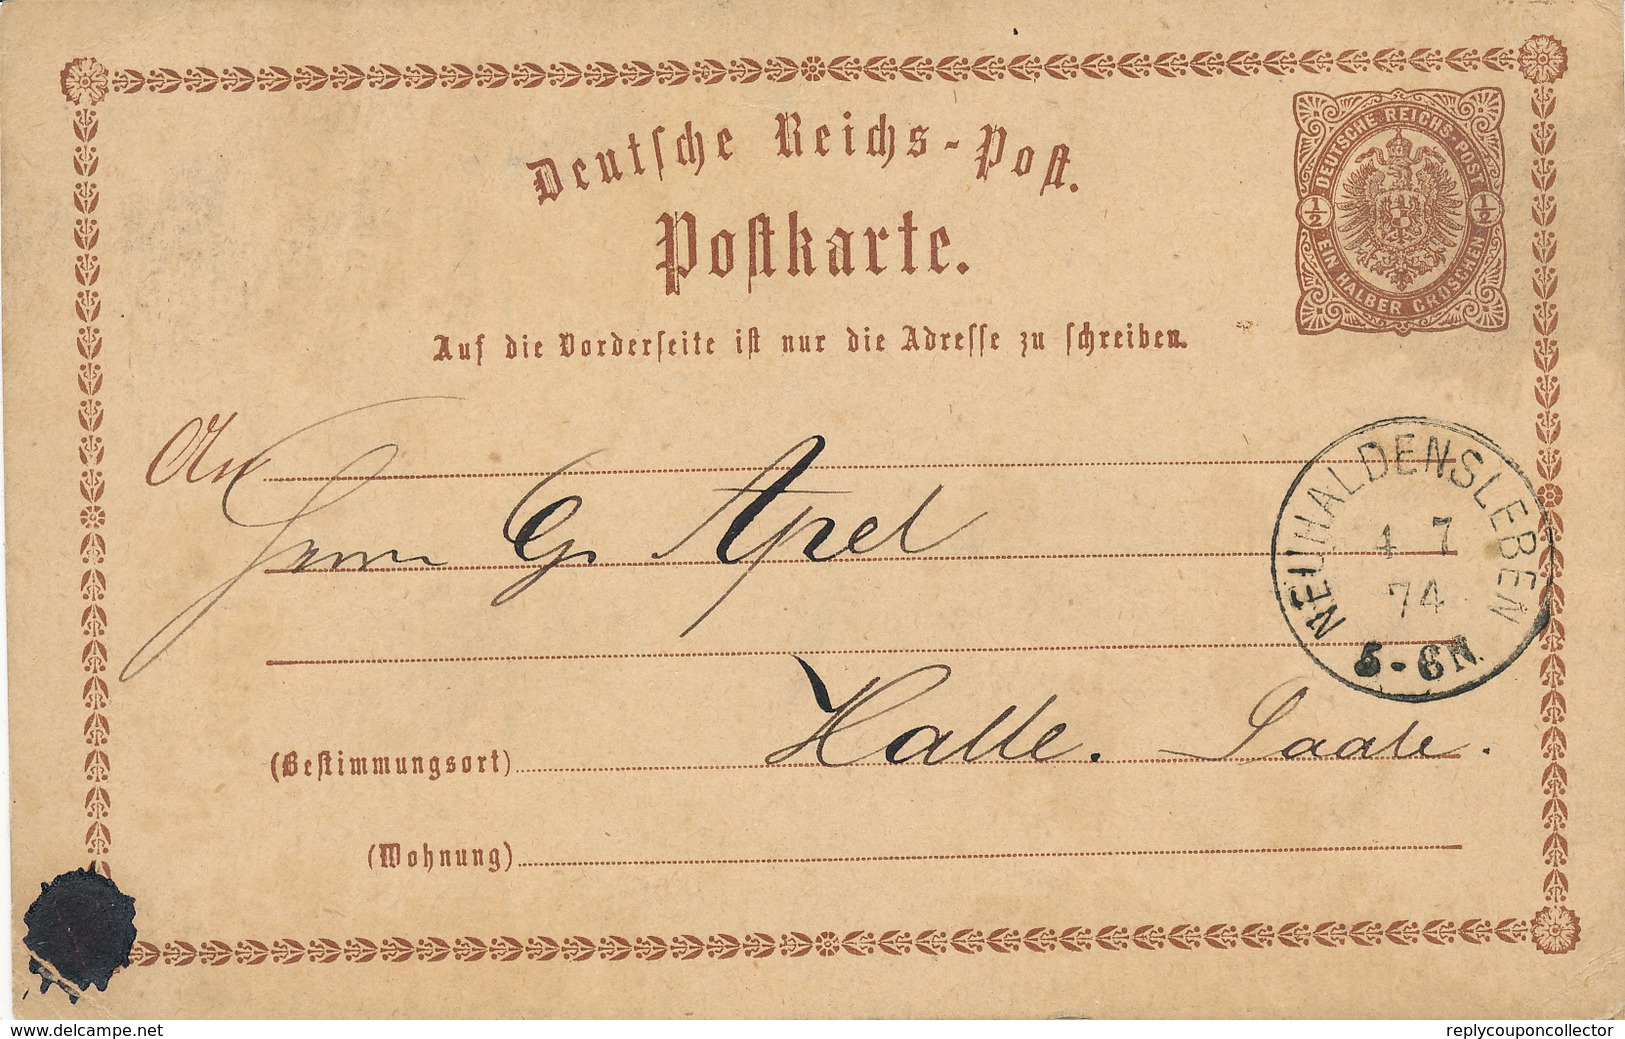 Deutsche Reichs-Post.
Postkarte.
DEUTSCHE REICHS-POST
1/2 1/2
EIN HALBER GROSCHEN
Auf die Vorderseite ist nur die Adresse zu schreiben.
An
Herrn G. Apel
NEUHALDENSLEBEN
4 7
74
5-6N.
(Bestimmungsort) Halle. Saale.
(Wohnung)
www.delcampe.net
replycouponcollector